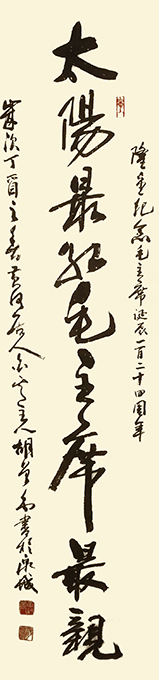 隆重纪念毛主席诞辰一百二十四周年
太陽最红毛主席最親
歳次丁酉之春黄河石人
胡
書於
城